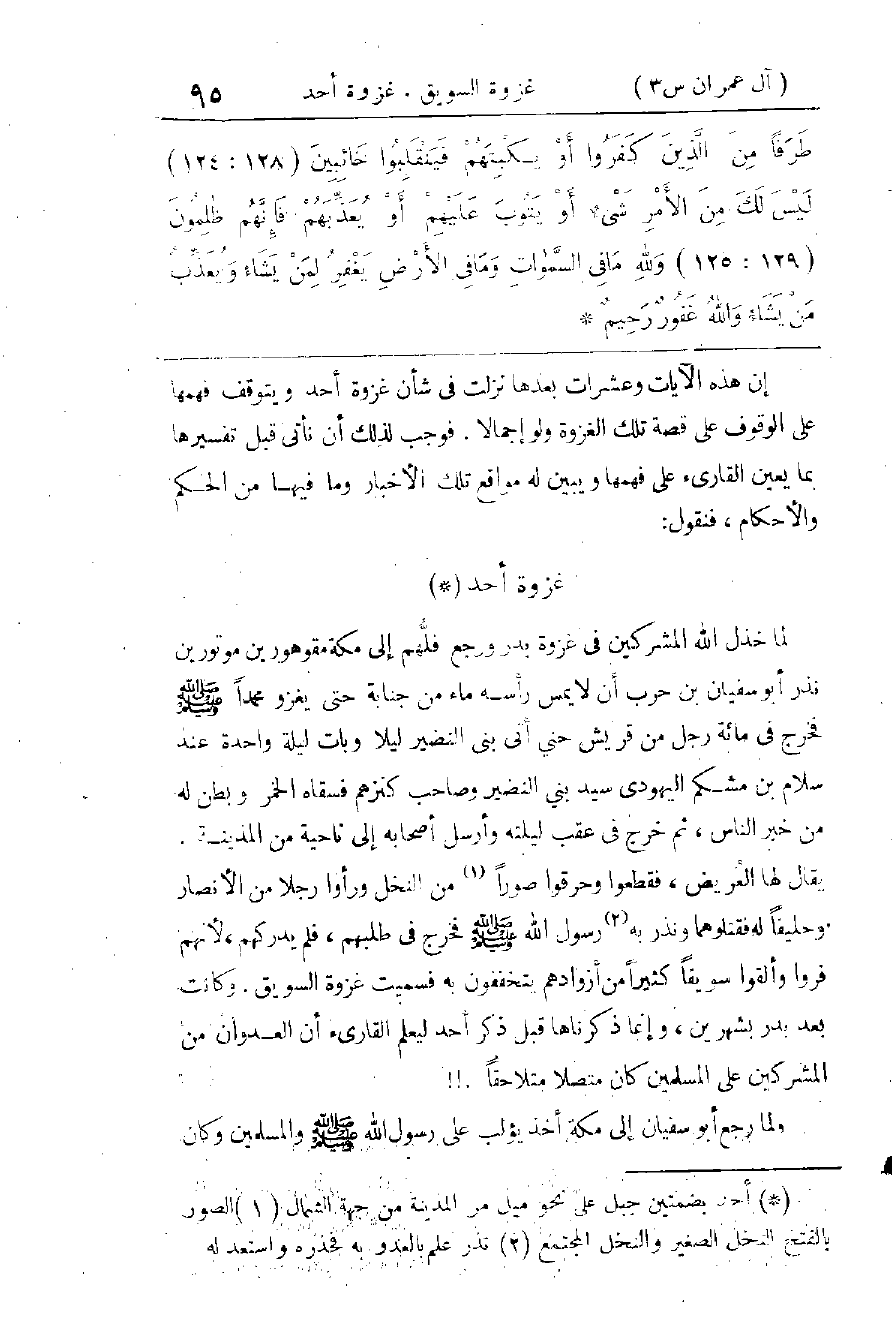 ( آل عمران س٣ ) غزوة السويق . غزوة أحد ٩٥
طَرَفًا مِنَ الَّذِينَ كَفَرُوا أَوْ يَكْبِتَهُمْ فَيَنْقَلِبُوا خَائِبِينَ ( ١٢٨ : ١٢٤ )
لَيْسَ لَكَ مِنَ الأَمْرِ شَىْءٌ أَوْ يَتُوبَ عَلَيْهِمْ أَوْ يُعَذِّبَهُمْ فَإِنَّهُم ظٰلِمُونَ
( ١٢٩ : ١٢٥ ) وَلِلّٰهِ مَافِى السَّمٰوَاتِ وَمَافِى الأَرْضِ يَغْفِرُ لِمَنْ يَشَاءُ وَيُعَذِّبُ
مَنْ يَشَاءُ وَاللهُ غَفُورٌ رَحِيمٌ *
إن هذه الآيات وعشرات بعدها نزلت فى شأن غزوة أحد ويتوقف فهمها
على الوقوف على قصة تلك الغزوة ولو إجمالا . فوجب لذلك أن نأتى قبل تفسيرها
بما يعين القارىء على فهمها ويبين له مواقع تلك الأخبار وما فيها من الحكم
والأحكام ، فنقول:
غزوة أحد (*)
لما خذل الله المشركين فى غزوة بدر ورجع فلُّهم إلى مكة مقهورين موتورين
نذر أبو سفيان بن حرب أن لا يمس رأسه ماء من جنابة حتى يغزو محمداً ﷺ
فخرج فى مائة رجل من قريش حتي أتى بنى النضير ليلا وبات ليلة واحدة عند
سلام بن مشكم اليهودى سيد بني النضير وصاحب كنزهم فسقاه الخمر وبطن له
من خبر الناس ، ثم خرج فى عقب ليلته وأرسل أصحابه إلى ناحية من المدينة .
يقال لها العُريض ، فقطعوا وحرقوا صوراً (١) من النخل ورأوا رجلا من الأنصار
وحليفاً له فقتلوهما ونذر به(٢) رسول الله ﷺ فخرج فى طلبهم ، فلم يدركهم ، لأنهم
فروا وألقوا سويقاً كثيراً من أزوادهم يتخففون به فسميت غزوة السويق . وكانت
بعد بدر بشهرين ، وإنما ذكرناها قبل ذكر أحد ليعلم القارىء أن العدوان من
المشركين على المسلمين كان متصلا متلاحقاً .!!
ولما رجع أبو سفيان إلى مكة أخذ يؤلب على رسول الله ﷺ والمسلمين وكان
(*) أحد بضمتين جبل على نحو ميل من المدينة من جهة الشمال ( ١ ) الصور
بالفتح النخل الصغير والنخل المجتمع (٢) نذر علم بالعدو به فحذره واستعد له